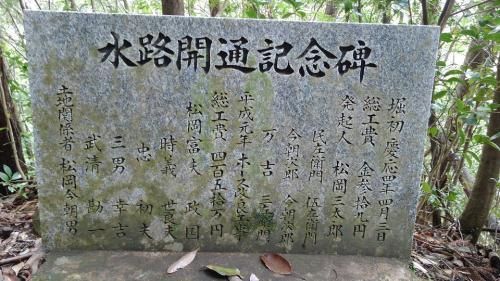 水路開通記念碑
堀初慶応四年四月三日
総工費 金参拾九円
発起人 松岡三太郎
民左衛門 伍左衛門
今朝次郎 今朝太郎
万吉
平成元年
総工費 四百五拾万円
松岡富夫 政国
時義
忠 初夫
三男 幸吉
武清 勘一
土地関係者 松岡今朝男